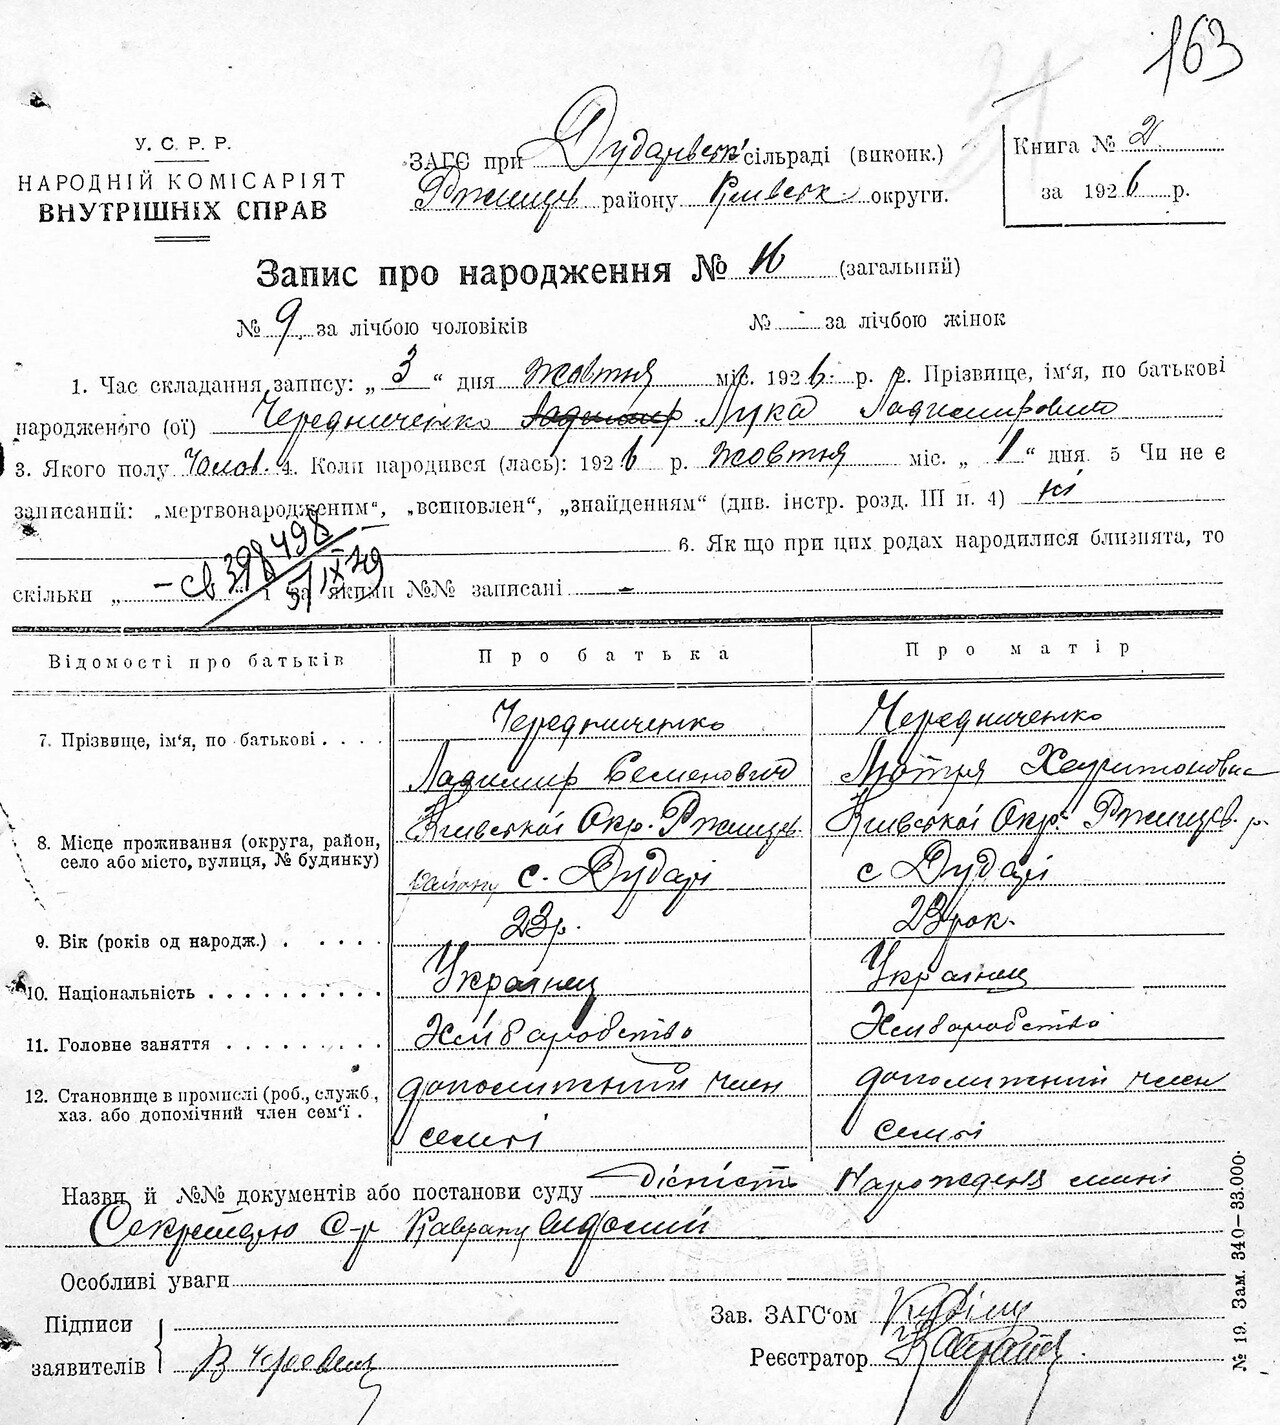 163
У. С. Р. Р.
НАРОДНІЙ КОМІСАРІЯТ
ВНУТРІШНІХ СПРАВ
ЗАГС при Дударівськ сільраді (виконк.)
Ржищев району Київськ. округи.
Книга № 2
за 1926 р.
Запис про народження № 16 (загальний)
№ 9 за лічбою чоловіків № - за лічбою жінок
1. Час складання запису: „ 3 “ дня жовтня міс. 1926 р. 2. Прізвище, ім'я, по батькові
народженого (ої) Чередниченко Ладимир Лука Ладимирович
3. Якого полу Чолов. 4. Коли народився (лась): 1926 р. жовтня міс. „ 1 “ дня. 5 Чи не є
записаний: „мертвонародженим“, „всиновлен“, „знайденням“ (див. інстр. розд. III п. 4) ні
6. Якщо при цих родах народилися близнята, то
скільки „ “ і за якими №№ записані -
- св 398498 -
5/IX 49
Відомості про батьків Про батька Про матір
7. Прізвище, ім'я, по батькові . . . . Чередниченко Чередниченко
Ладимир Семенович Мотря Харитоновна
8. Місце проживання (округа, район, село або місто, вулиця, № будинку) Київської Окр. Ржищев. Київської Окр. Ржищев. р.
району с. Дударі с Дударі
9. Вік (років од народж.) . . . . . 23 р. 23 рок.
10. Національність . . . . . . . . . . Українец Українец
11. Головне заняття . . . . . . . . . Хліборобство Хліборобство
12. Становище в промислі (роб., служб., хаз. або допомічний член сем'ї . допомижний член допомижний член
семьі семьі
Назви й №№ документів або постанови суду Дісність нарождення мині
Секретарю С-р відомий
Особливі уваги
Підписи
заявителів
Зав. ЗАГС'ом
Реєстратор
№ 19. Зам. 340—33.000.